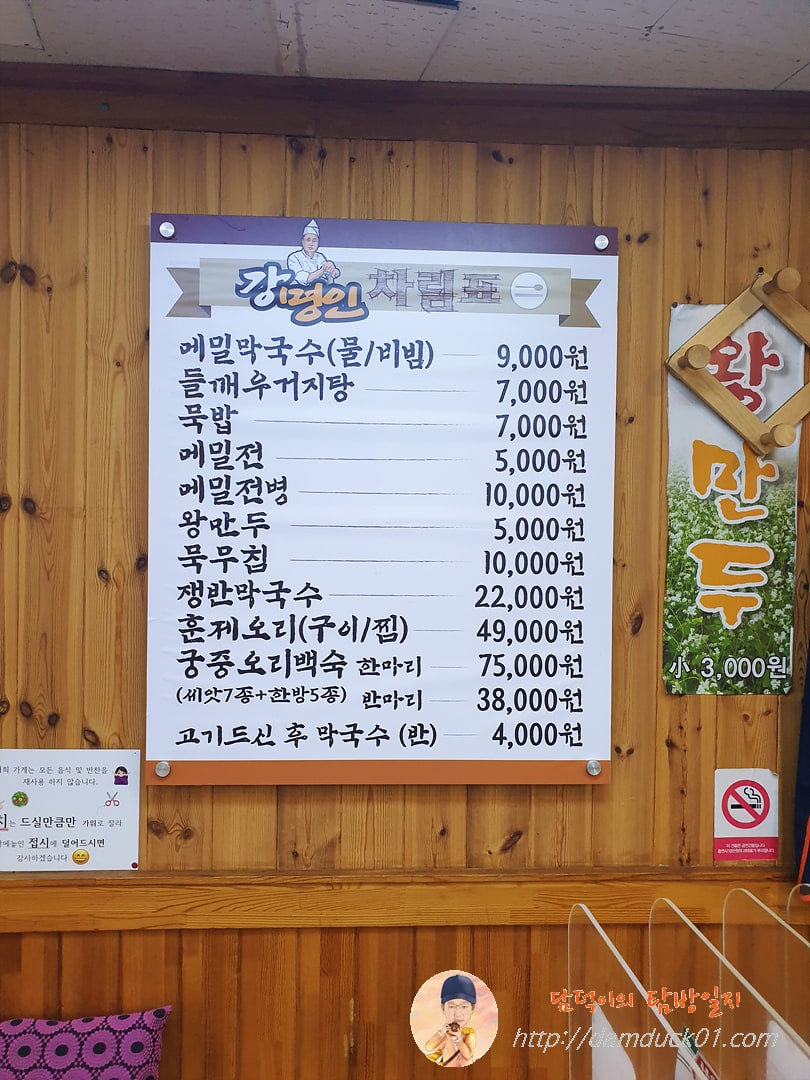 강명인 차림표
메밀막국수(물/비빔) 9,000원
들깨우거지탕 7,000원
묵밥 7,000원
메밀전 5,000원
메밀전병 10,000원
왕만두 5,000원
묵무침 10,000원
쟁반막국수 22,000원
훈제오리(구이/찜) 49,000원
궁중오리백숙 한마리 75,000원
(씨앗7종+한방5종) 반마리 38,000원
고기드신 후 막국수 (반) 4,000원
왕
만
두
小 3,000원
가게는 모든 음식 및 반찬을
재사용 하지 않습니다.
치는 드실만큼만 가위로 잘라
접시에 덜어드시면
감사하겠습니다
담덕이의 탐방일지
http://damduck01.com